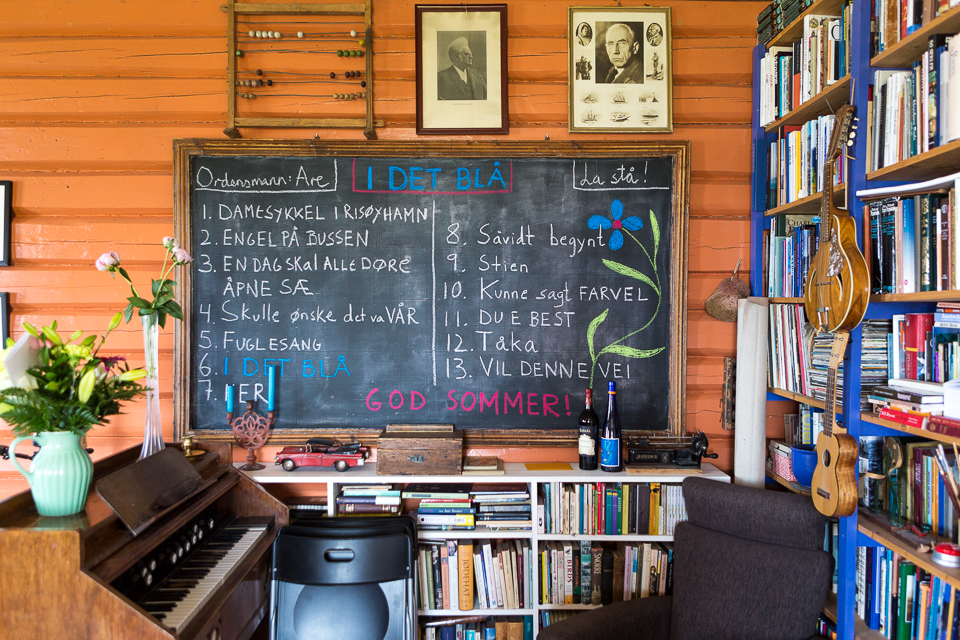 Ordensmann: Are
I DET BLÅ
La stå!
1. DAMESYKKEL I RISØYHAMN
2. ENGEL PÅ BUSSEN
3. EN DAG SKAL ALLE DØRE
ÅPNE SÆ
4. Skulle ønske det va VÅR
5. FUGLESANG
6. I DET BLÅ
7. HER
8. Såvidt begynt
9. Stien
10. Kunne sagt FARVEL
11. DU E BEST
12. Tåka
13. VIL DENNE VEI
GOD SOMMER!
BIRDS